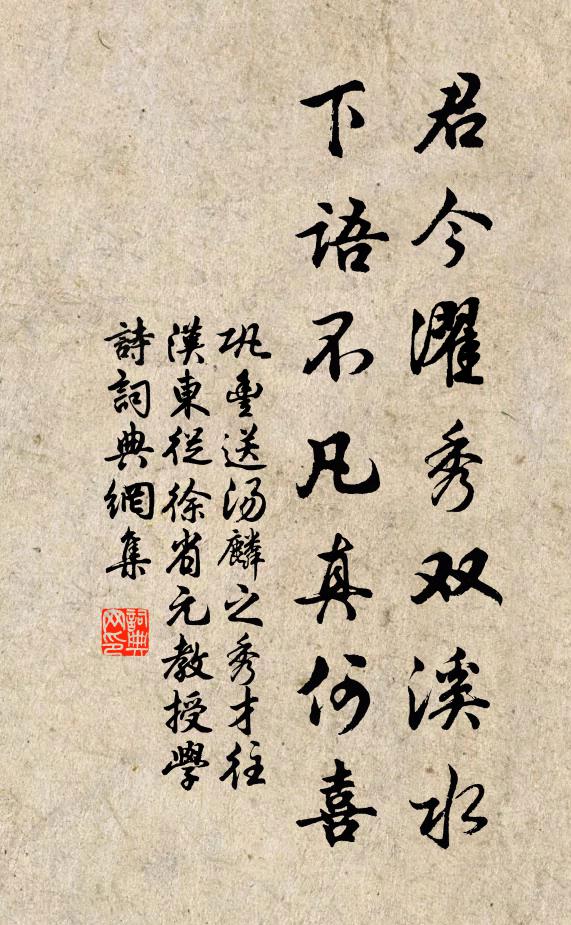 君今濯秀双溪水
下语不凡真何喜
巩丰送汤麟之秀才往
漢東從徐省元教授學
詩詞典網集
詞典网印